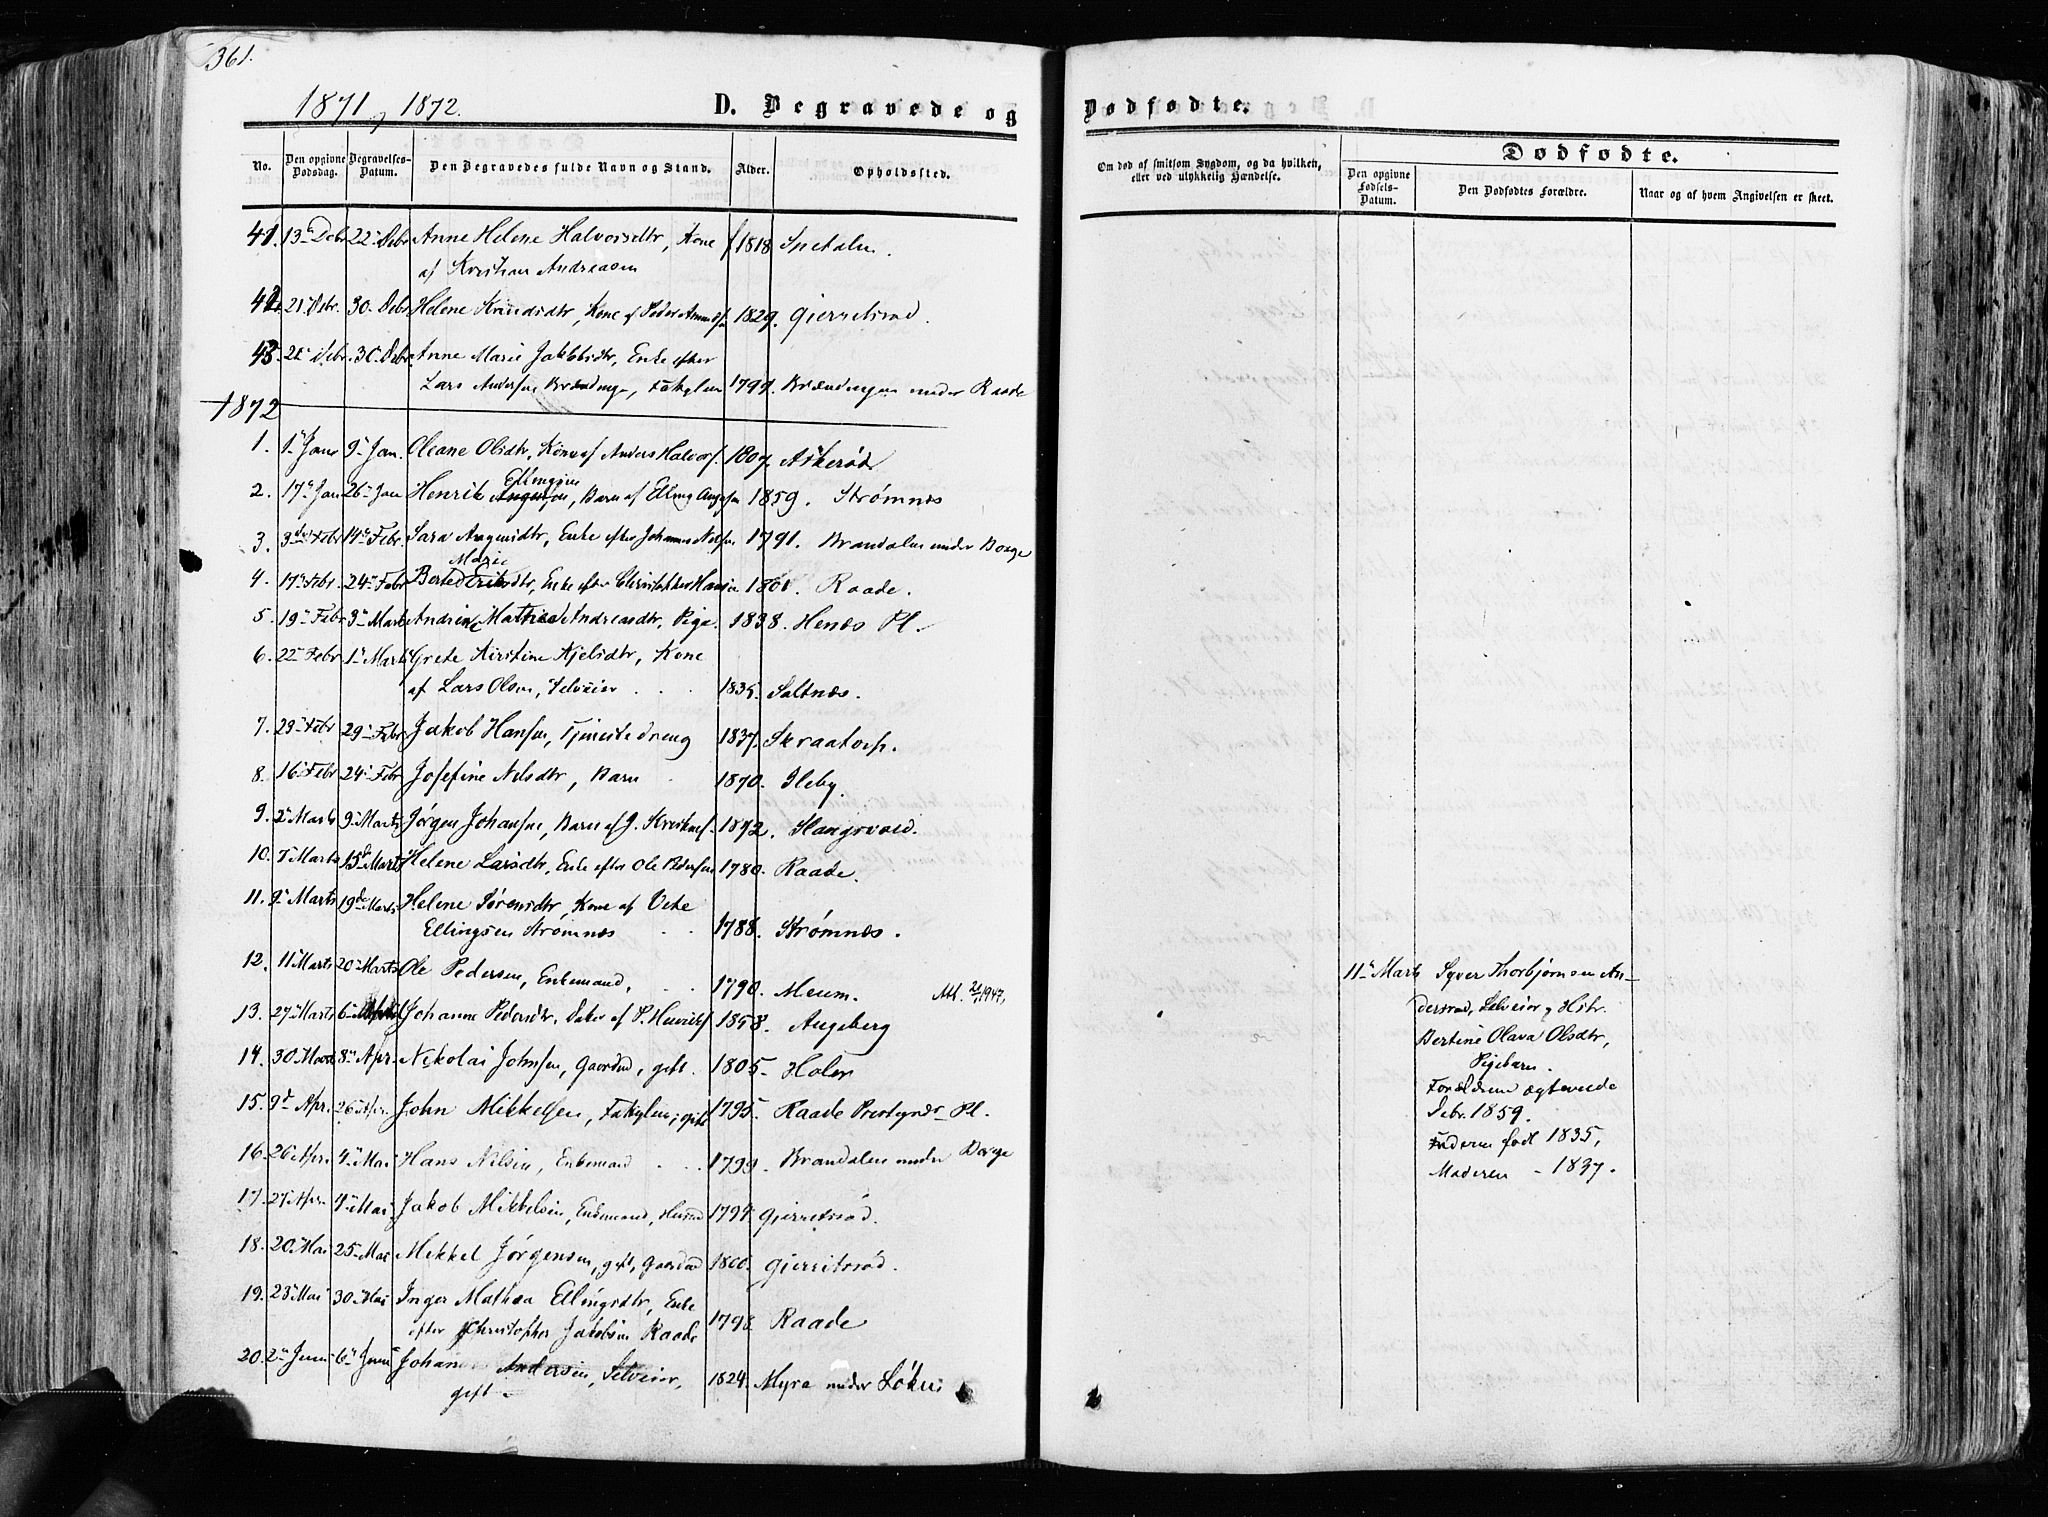 361.
1871, 1872.
D. Begravede og
No. Den opgivne Dødsdag. Begravelses-Datum. Den Begravedes fulde Navn og Stand. Alder. Opholdssted.
41. 13de Debr 22de Debr Anne Helene Halvorsdtr, Kone f 1818 Spetalen.
af Kristian Andreasen
42. 21 Debr. 30. Debr Helene Knudsdtr, Kone af Peder 1829. Gjerretsrød.
43. 22 Debr. 30 Debr. Anne Marie Jakobsdtr, Enke efter
Lars Andersen Brændinge, Fatlem 1797. Brændingen under Raade
1872
1. 1ste Janr 9de Jan. Oleane Olsdtr, Kone af Anders Halvors. 1807. Askerød
Ellingsen
2. 17de Jan 26de Jan Henrik Aagesen, Barn af Elling Aagesen 1859. Strømnes
3. 3die Febr 14de Febr. Sara Aagesdtr, Enke efter Johannes Nilsen 1791. Brandalen under Borge
Marie
4. 17de Febr. 24de Febr Berte Eriksdtr, Enke efter Christopher Hansen 1801. Raade.
5. 19de Febr 3die Marts Andrine Mathea Andreasdtr. Pige. 1838. Henæs Pl.
6. 22de Febr 1ste Marts Grete Kirstine Kjelsdtr, Kone
af Lars Olsen, Selveier . . . 1835. Saltnæs.
7. 23de Febr 29de Febr Jakob Hansen, Tjenestedreng 1837. Skraatorp.
8. 16 Febr 24de Febr Josefine Nilsdtr, Barn . 1870. Ileby.
9. 2den Marts 9de Marts Jørgen Johansen, Barn af J. Kristians. 1872. Slangsvold.
10. 7 Marts 15de Marts Helene Larsdtr, Enke efter Ole Pedersen 1780. Raade.
11. 9de Marts 19de Marts Helene Sørensdtr, Kone af Vete
Ellingsen Strømnæs . . 1788. Strømnæs.
12. 11 Marts 20de Marts Ole Pedersen, Enkemand. . . 1790. Meum. Att. 2/1 1947.
13. 27de Marts 6te April Johanne Pedersdtr, Datter af P. Henriks. 1858. Augeberg
14. 30 Marts 8de Apr. Nikolai Johnsen, Gaardmd, gift. 1805. Holen
15. 9de Apr. 26 Apr. John Mikkelsen, Fatlem, gift 1795. Raade Prestegaards Pl.
16. 26 Apr. 4de Mai Hans Nilsen, Enkemand . . . 1799. Brandalen under Borge
17. 27de Apr. 4de Mai Jakob Mikkelsen, Enkemand, Husmd 1794. Gjerretsrød.
18. 20 Mai 25de Mai Mikkel Jørgensen, gift, Gaardmd 1800. Gjerritsrød.
19. 23de Mai 30 Mai Inger Mathea Ellingsdtr, Enke
efter Christopher Jakobsen Raade 1798. Raade
20. 2den Juni 6te Juni Johan Andersen, Selveier,
gift. 1824. Myra under Løken
Dødfødte.
Om død af smitsom Sygdom, og da hvilken, eller ved ulykkelig Hændelse.
Dødfødte.
Den opgivne Fødsels-Datum. Den Dødfødtes Forældre. Naar og af hvem Angivelsen er skeet.
11te Marts Syver Thorbjørnsen An-
dersrød, Selveier og Hstr.
Bertine Olava Olsdtr,
Pigebarn.
Forældrene ægteviede
Debr. 1859.
Faderen født 1835,
Moderen – 1837.